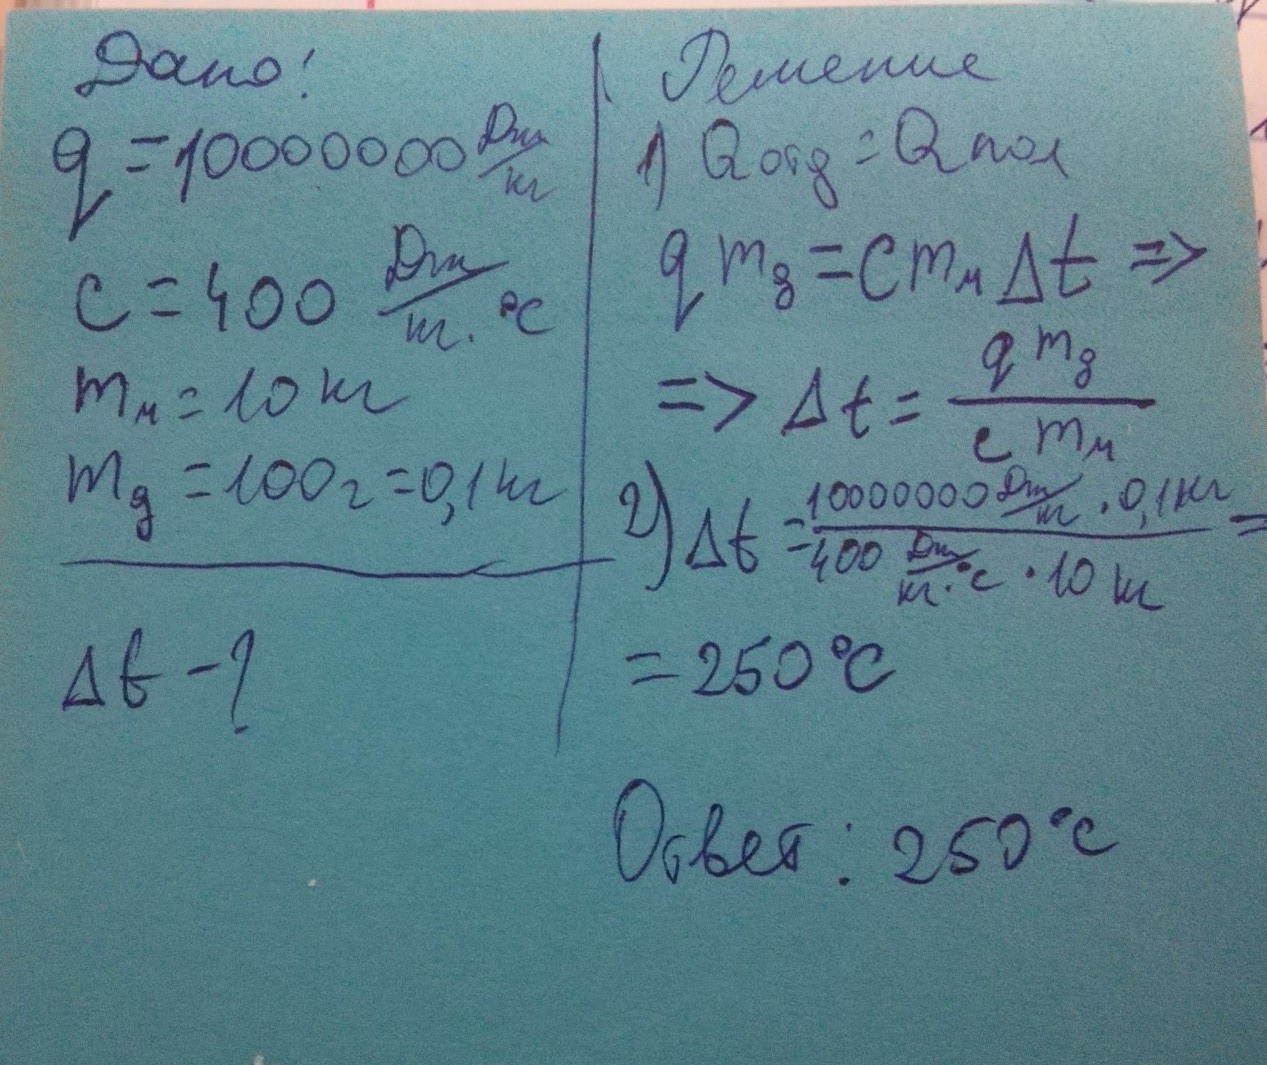 Дано:
q = 10000000 Дж/кг
c = 400 Дж/кг·°C
mм = 10 кг
mд = 100 г = 0,1 кг
Δt - ?
Решение
1) Qотд = Qпол
q mд = c mм Δt =>
=> Δt = q mд / c mм
2) Δt = 10000000 Дж/кг · 0,1 кг / 400 Дж/кг·°C · 10 кг =
= 250 °C
Ответ: 250 °C